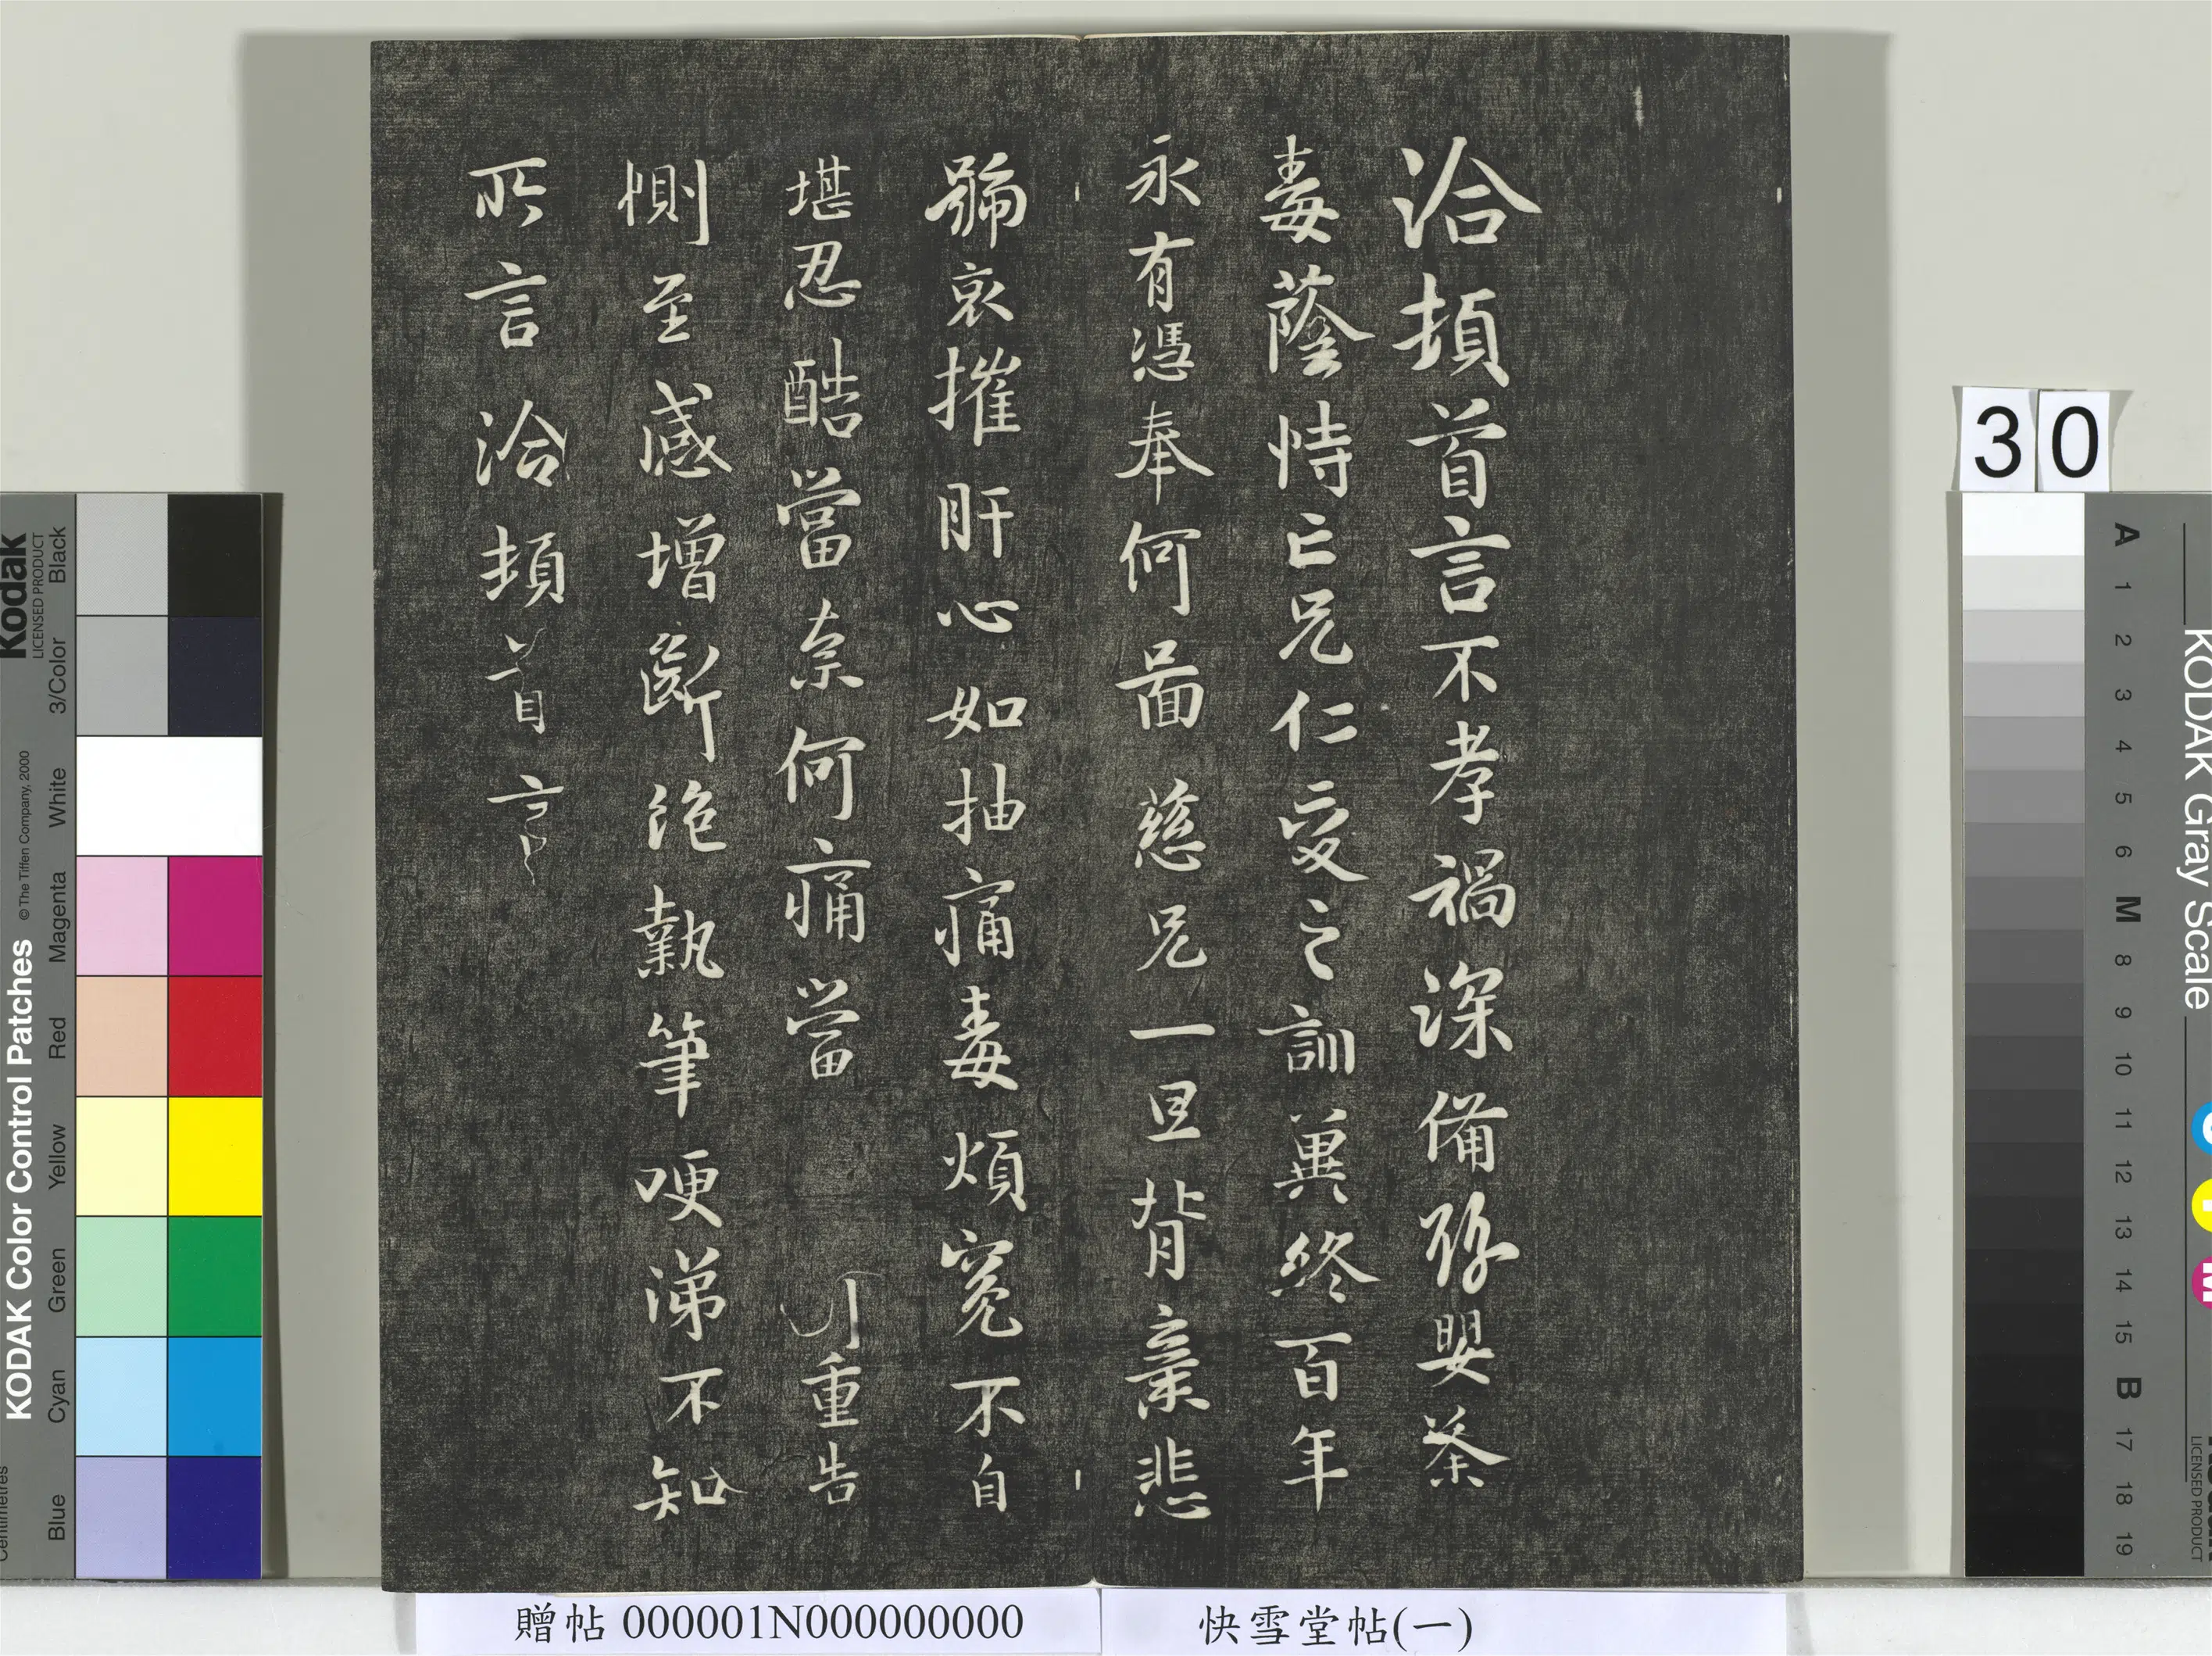 洽頓首言不孝禍深備豫嬰荼
毒蔭恃亡兄仁愛之訓冀終百年
永有憑奉何啚慈兄一旦背棄悲
號哀摧肝心如抽痛毒煩冤不自
堪忍酷當奈何痛當重告
惻至感增斷絕執筆哽涕不知
所言洽頓首言
30
贈帖 000001N000000000
快雪堂帖(一)
KODAK Color Control Patches
© The Tiffen Company, 2000
Kodak
LICENSED PRODUCT
Blue Cyan Green Yellow Red Magenta White 3/Color Black
KODAK Gray Scale
A 1 2 3 4 5 6 M 8 9 10 11 12 13 14 15 B 17 18 19
LICENSED PRODUCT